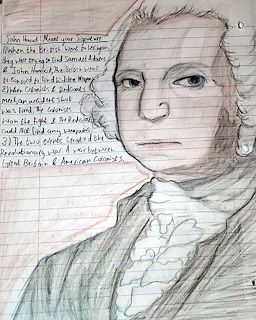 John Hancock: Meet your Signature
1) When the British went to Lexington
they were trying to find Samuel Adams
& John Hancock. The British went
to Concord to find hidden Weapons
2) When Colonists & Redcoats
meet, an accident shot
was fired. The colonies
won the fight & The Redcoats
could not find any weapons
3) The two events created the
Revolutionary war. A war between
Great Britain & American Colonies.